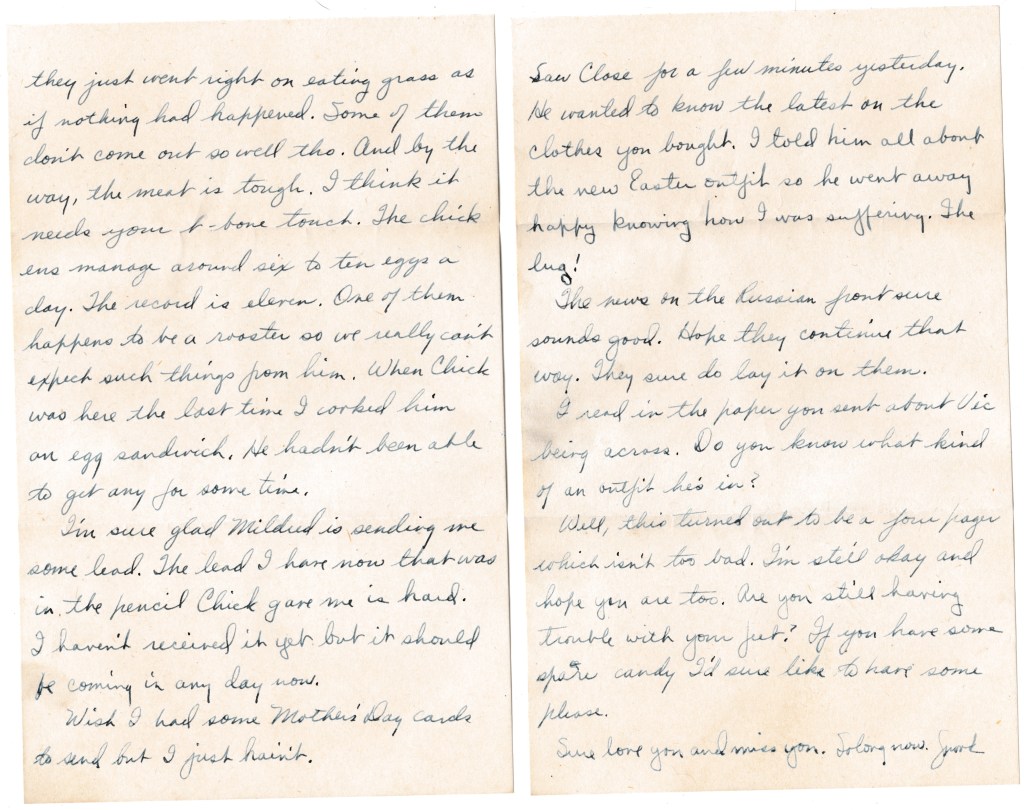 they just went right on eating grass as
if nothing had happened. Some of them
don't come out so well tho. And by the
way, the meat is tough. I think it
needs your t-bone touch. The chick
ens manage around six to ten eggs a
day. The record is eleven. One of them
happens to be a rooster so we really can't
expect such things from him. When Chick
was here the last time I corked him
an egg sandwich. He hadn't been able
to get any for some time.
I'm sure glad Mildred is sending me
some lead. The lead I have now that was
in the pencil Chick gave me is hard.
I haven't received it yet but it should
be coming in any day now.
Wish I had some Mother's Day cards
to send but I just hain't.
Saw Close for a few minutes yesterday.
He wanted to know the latest on the
clothes you bought. I told him all about
the new Easter outfit so he went away
happy knowing how I was suffering. The
lug!
The news on the Russian front sure
sounds good. Hope they continue that
way. They sure do lay it on them.
I read in the paper you sent about Vic
being across. Do you know what kind
of an outfit he's in?
Well, this turned out to be a four pager
which isn't too bad. I'm still okay and
hope you are too. Are you still having
trouble with your feet? If you have some
spare candy I'd sure like to have some
please.
Sure love you and miss you. Solong now.